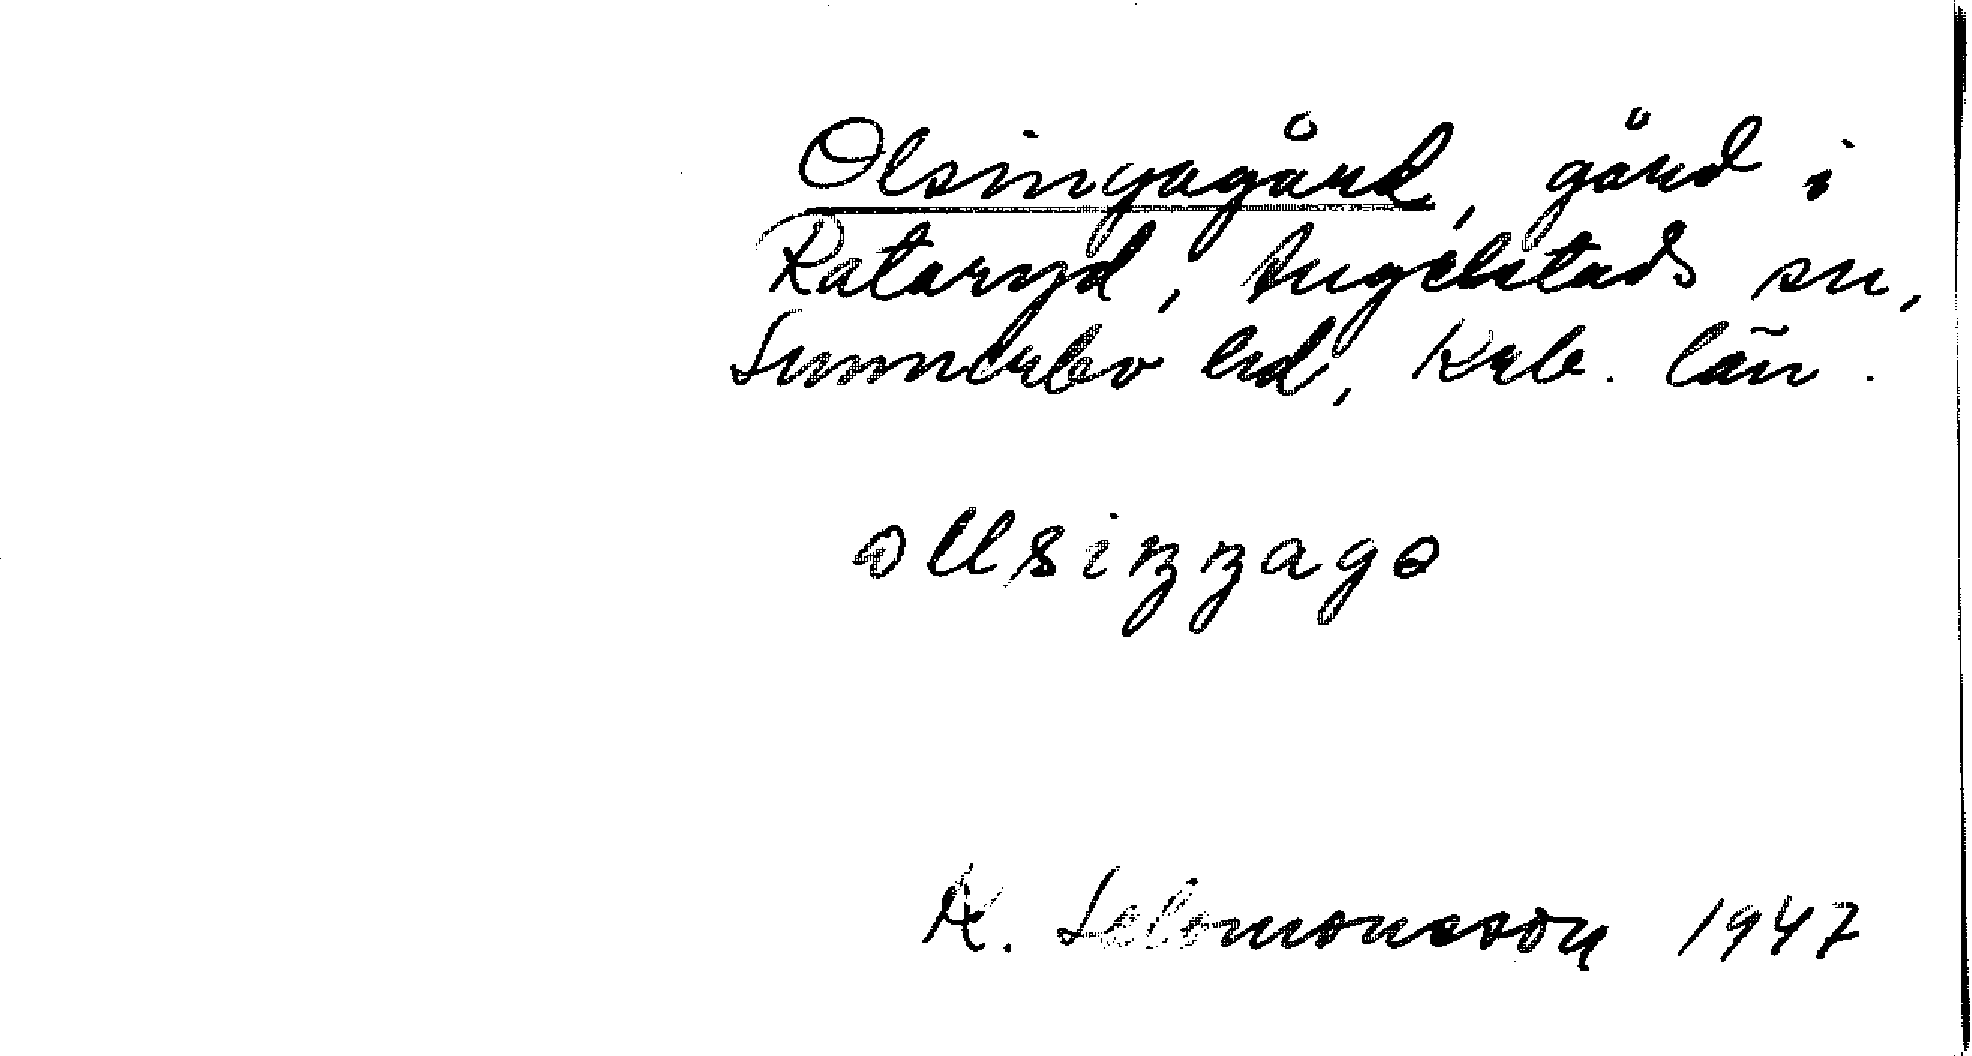 Olsingagård, gård i
Rataryd, Angelstads sn,
Sunnerbo hd, Krb. län.
A. Salomonsson 1947